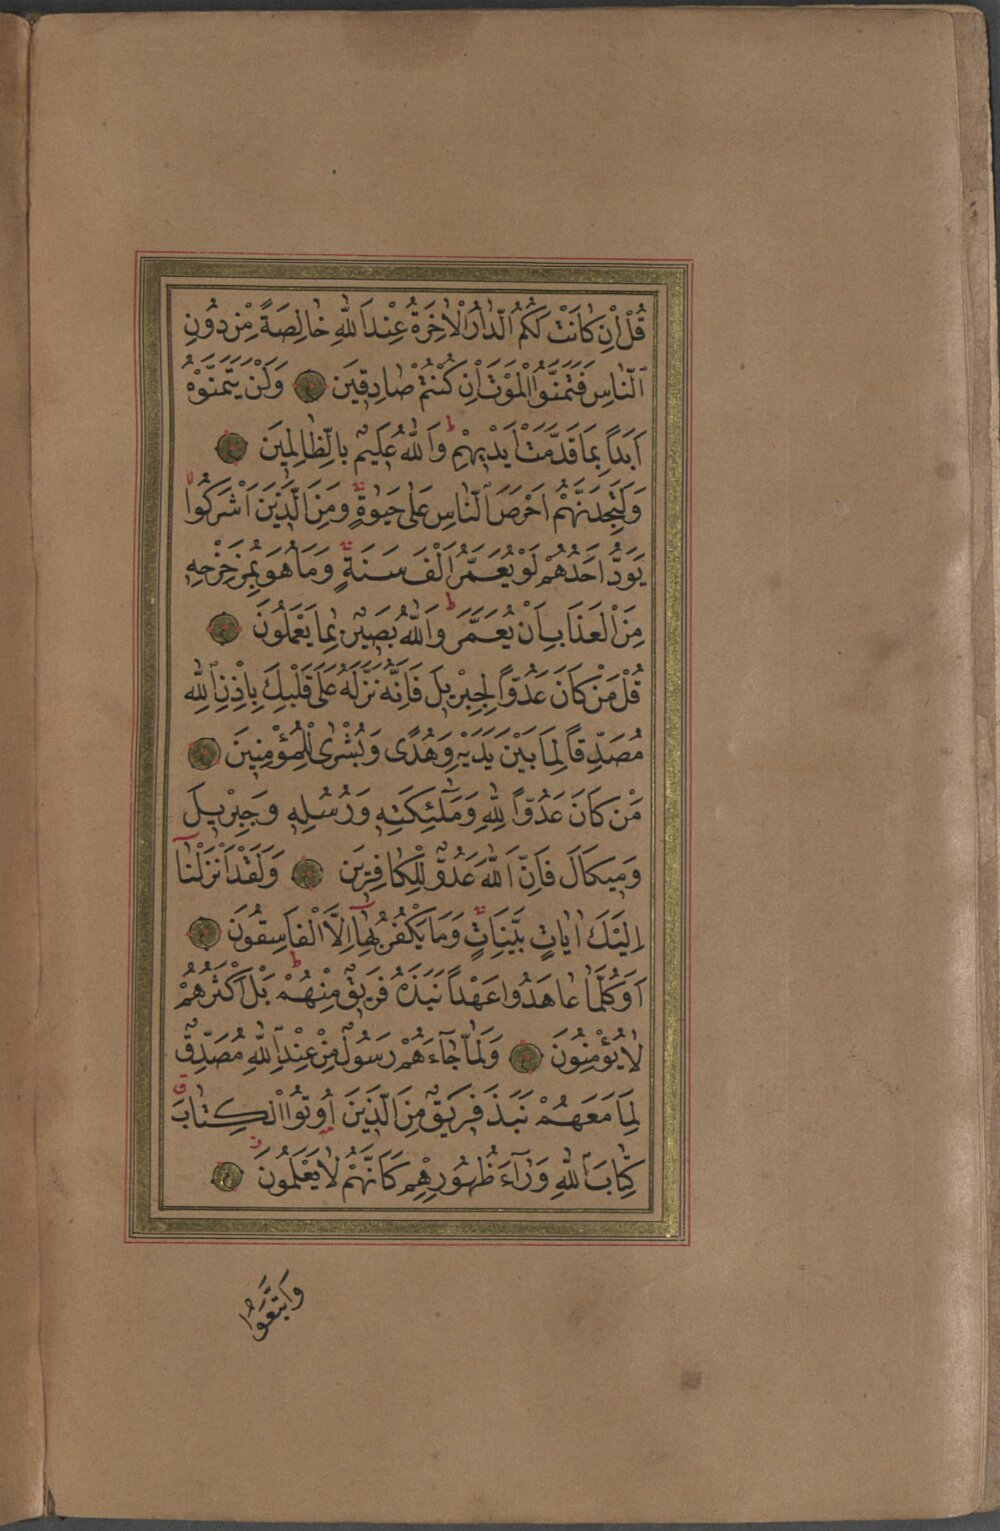 قُلْ اِنْ كَانَتْ لَكُمُ الدَّارُ الْاٰخِرَةُ عِنْدَ اللّٰهِ خَالِصَةً مِنْ دُونِ
النَّاسِ فَتَمَنَّوُا الْمَوْتَ اِنْ كُنْتُمْ صَادِقِينَ وَلَنْ يَتَمَنَّوْهُ
اَبَدًا بِمَا قَدَّمَتْ اَيْدِيهِمْ ط وَاللّٰهُ عَلِيمٌ بِالظَّالِمِينَ
وَلَتَجِدَنَّهُمْ اَحْرَصَ النَّاسِ عَلٰى حَيٰوةٍ وَمِنَ الَّذِينَ اَشْرَكُوا
يَوَدُّ اَحَدُهُمْ لَوْ يُعَمَّرُ اَلْفَ سَنَةٍ وَمَا هُوَ بِمُزَحْزِحِهِ
مِنَ الْعَذَابِ اَنْ يُعَمَّرَ ط وَاللّٰهُ بَصِيرٌ بِمَا يَعْمَلُونَ
قُلْ مَنْ كَانَ عَدُوًّا لِجِبْرِيلَ فَاِنَّهُ نَزَّلَهُ عَلٰى قَلْبِكَ بِاِذْنِ اللّٰهِ
مُصَدِّقًا لِمَا بَيْنَ يَدَيْهِ وَهُدًى وَبُشْرٰى لِلْمُؤْمِنِينَ
مَنْ كَانَ عَدُوًّا لِلّٰهِ وَمَلٰٓئِكَتِهِ وَرُسُلِهِ وَجِبْرِيلَ
وَمِيكَالَ فَاِنَّ اللّٰهَ عَدُوٌّ لِلْكَافِرِينَ وَلَقَدْ اَنْزَلْنَٓا
اِلَيْكَ اٰيَاتٍ بَيِّنَاتٍ وَمَا يَكْفُرُ بِهَٓا اِلَّا الْفَاسِقُونَ
اَوَكُلَّمَا عَاهَدُوا عَهْدًا نَبَذَهُ فَرِيقٌ مِنْهُمْ ط بَلْ اَكْثَرُهُمْ
لَا يُؤْمِنُونَ وَلَمَّا جَٓاءَهُمْ رَسُولٌ مِنْ عِنْدِ اللّٰهِ مُصَدِّقٌ
لِمَا مَعَهُمْ نَبَذَ فَرِيقٌ مِنَ الَّذِينَ اُوتُوا الْكِتَابَ ق
كِتَابَ اللّٰهِ وَرَٓاءَ ظُهُورِهِمْ كَاَنَّهُمْ لَا يَعْلَمُونَ
وَاتَّبَعُوا